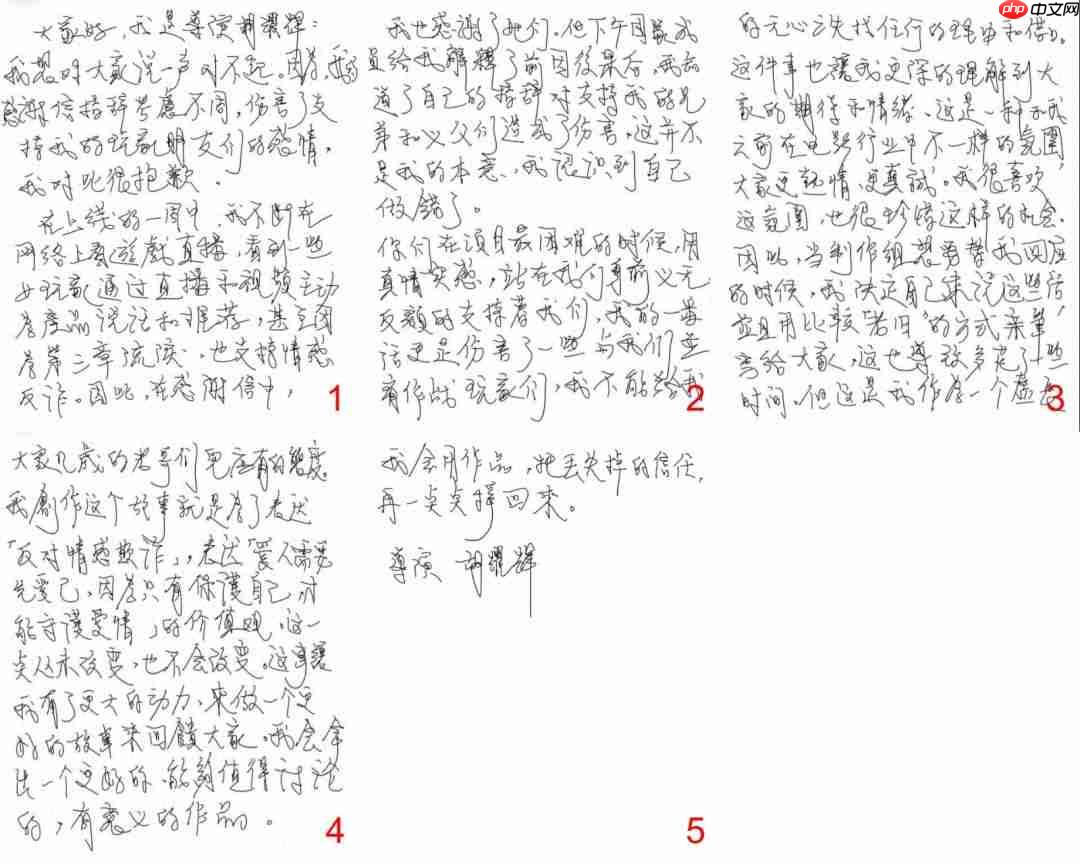 大家好,我是導演胡耀輝:
我想对大家说一声对不起。因為我的
感謝信措辞考慮不同,伤害了支
持我的玩家朋友们的感情,
我对此很抱歉.
在上线的一周中,我不断在
网络上看遊戲直播,看到一些
女玩家通过直播和视频主动
為產品说话和推荐,甚至因
為第二章流淚。也支持情感
反诈。因此,在感謝信中,
1
我也感謝了她们。但下午同事成
員给我解釋了前因後果后,我知
道了自己的措辞对支持我的兄
弟和义父们造成了伤害,这并不
是我的本意,我认识到自己
做錯了。
你们在项目最困难的时候,用
真情实感,站在我们身前义无
反顾的支持着我们,我的一番
话更是伤害了一些与我们並
肩作战玩家们,我不能给我
2
的无心之失找任何的理由和借口
这件事也讓我更深的理解到大
家的期待和情绪。这是一种和我
之前在电影行业中不一样的氛圍
大家更熱情,更真誠。我很喜欢
这氛圍,也很珍惜这样的机会.
因此,当制作组想要帮我回应
的时候,我决定自己来说这些话
並且用比較"老旧"的方式亲筆
寫给大家,这也導致多花了一些
时间。但这是我作為一个虚長
3
大家几歲的老哥们児应有的態度
我創作这个故事就是為了表达
「反对情感欺诈」,表达「愛人需要
先愛己,因為只有保護自己,才
能守護愛情」的价值观。这一
点从未改变,也不会改变。这事讓
我有了更大的动力,来做一个更
好的故事来回饋大家。我会拿
出一个更好的,能夠值得讨论
的,有意义的作品。
4
我会用作品,把丢失掉的信任,
再一点点撑回来。
導演 胡耀輝
5
php 中文网